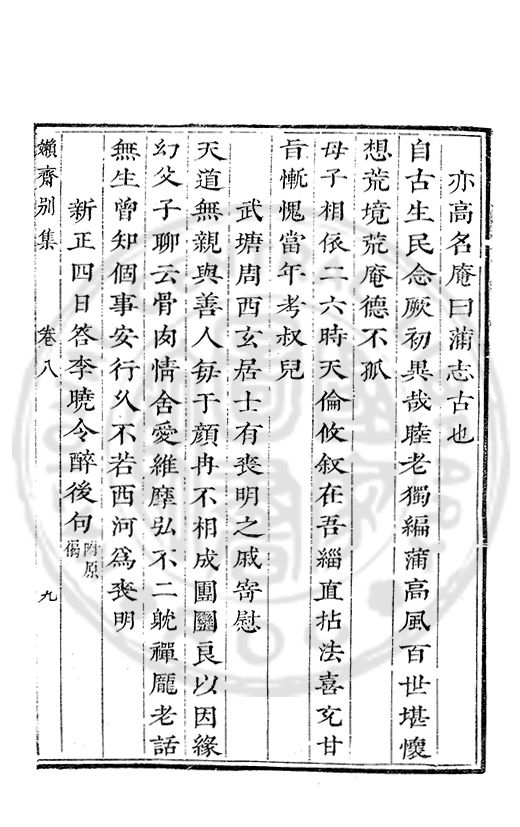 亦高名庵曰蒲志古也
自古生民念厥初異哉睦老獨編蒲高風百世堪懷
想荒境荒庵德不孤
母子相依二六時天倫攸叙在吾緇直拈法喜充甘
旨慚愧當年考叔兒
武塘周西玄居士有喪明之戚寄慰
天道無親與善人毎于顔冉不相成團圞良以因緣
幻父子聊云骨肉情舍愛維摩弘不二躭禪龎老話
無生曾知個事安行久不若西河爲喪明
新正四日答李曉令醉後句附原偈
嬾齋别集 卷八 九